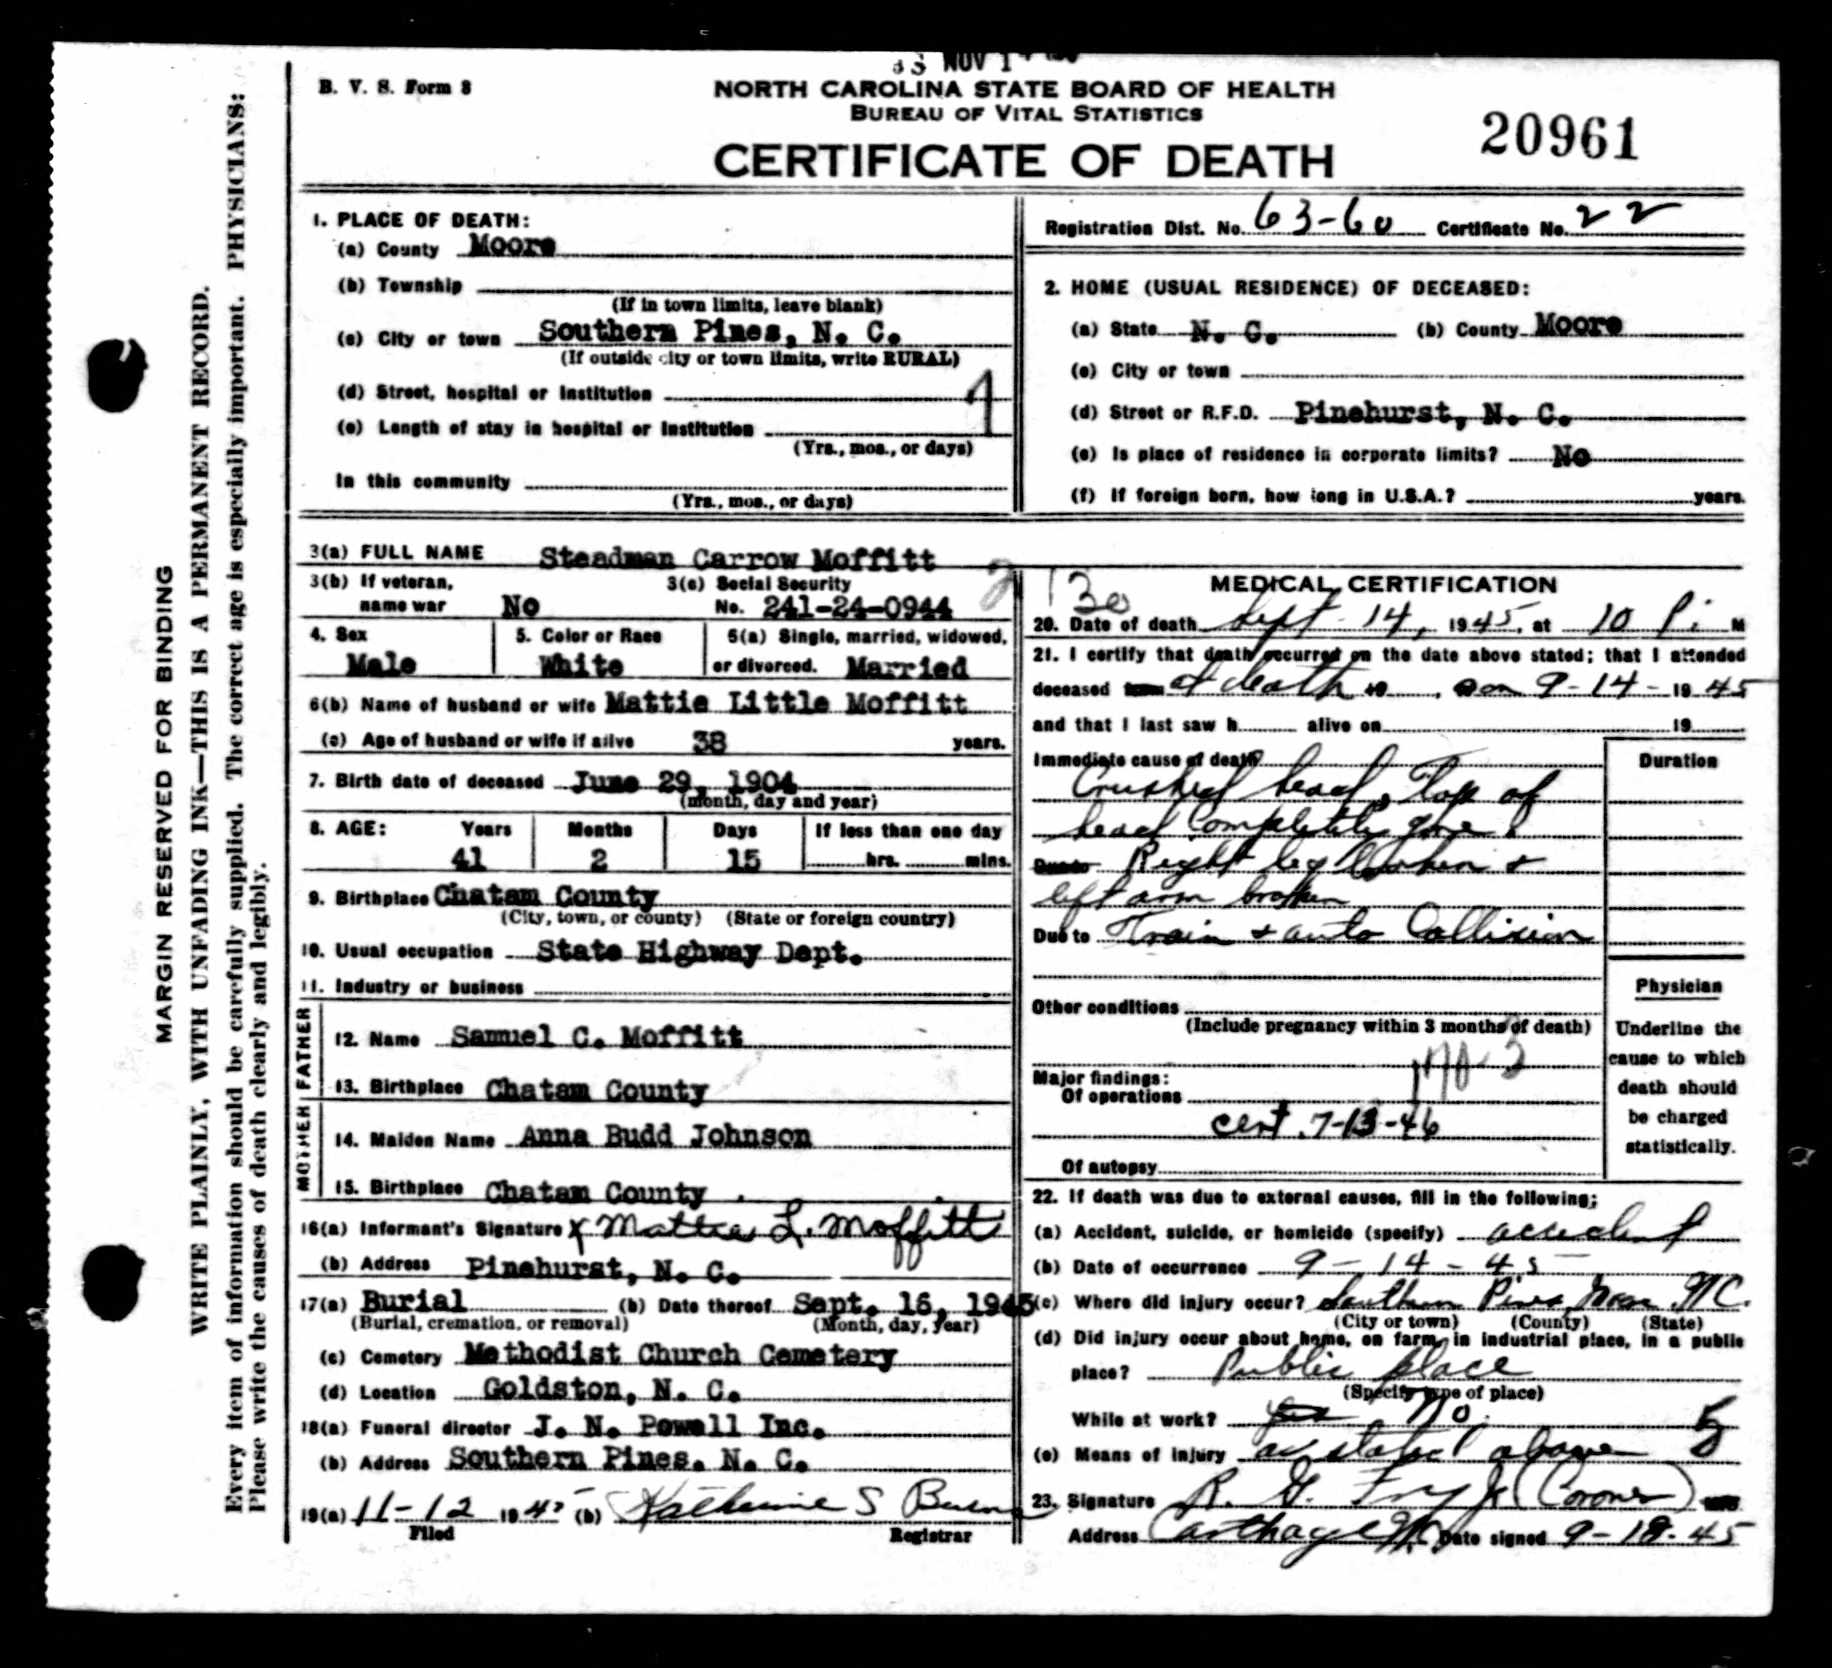 B. V. S. Form 8
NOV 1
NORTH CAROLINA STATE BOARD OF HEALTH
BUREAU OF VITAL STATISTICS
CERTIFICATE OF DEATH
20961
MARGIN RESERVED FOR BINDING
WRITE PLAINLY, WITH UNFADING INK—THIS IS A PERMANENT RECORD.
Every item of information should be carefully supplied. The correct age is especially important. PHYSICIANS:
Please write the causes of death clearly and legibly.
1. PLACE OF DEATH:
(a) County Moore
(b) Township
(If in town limits, leave blank)
(c) City or town Southern Pines, N. C.
(If outside city or town limits, write RURAL)
(d) Street, hospital or institution
(e) Length of stay in hospital or institution
(Yrs., mos., or days)
In this community
(Yrs., mos., or days)
Registration Dist. No. 63-60 Certificate No. 22
2. HOME (USUAL RESIDENCE) OF DECEASED:
(a) State N. C. (b) County Moore
(c) City or town
(d) Street or R.F.D. Pinehurst, N. C.
(e) Is place of residence in corporate limits? No
(f) If foreign born, how long in U.S.A.? years.
3(a) FULL NAME Steadman Carrow Moffitt
3(b) If veteran, name war No
3(c) Social Security No. 241-24-0944
4. Sex Male
5. Color or Race White
6(a) Single, married, widowed, or divorced. Married
6(b) Name of husband or wife Mattie Little Moffitt
(c) Age of husband or wife if alive 38 years.
7. Birth date of deceased June 29, 1904
(month, day and year)
8. AGE: Years Months Days If less than one day
41 2 15 hrs. mins.
9. Birthplace Chatam County
(City, town, or county) (State or foreign country)
10. Usual occupation State Highway Dept.
11. Industry or business
FATHER
12. Name Samuel C. Moffitt
13. Birthplace Chatam County
MOTHER
14. Maiden Name Anna Budd Johnson
15. Birthplace Chatam County
16(a) Informant's Signature x Mattie L. Moffitt
(b) Address Pinehurst, N. C.
17(a) Burial (b) Date thereof Sept. 16, 1945
(Burial, cremation, or removal) (Month, day, year)
(c) Cemetery Methodist Church Cemetery
(d) Location Goldston, N. C.
18(a) Funeral director J. N. Powell Inc.
(b) Address Southern Pines. N. C.
19(a) 11-12 1945 (b) Katherine S
Filed Registrar
MEDICAL CERTIFICATION
20. Date of death Sept. 14, 1945, at 10 P. M
21. I certify that death occurred on the date above stated; that I attended
deceased from at death to on 9-14-1945
and that I last saw h alive on 19
Immediate cause of death Duration
Crushed head, Top of
head Completely gone.
Due to Right leg broken &
left arm broken
Due to Train & auto Collision
Other conditions
(Include pregnancy within 3 months of death)
170-3
Major findings:
Of operations
cert. 7-13-46
Of autopsy
Physician
Underline the
cause to which
death should
be charged
statistically.
22. If death was due to external causes, fill in the following;
(a) Accident, suicide, or homicide (specify) accident
(b) Date of occurrence 9-14-45
(c) Where did injury occur? Southern Pines Moore N.C.
(City or town) (County) (State)
(d) Did injury occur about home, on farm, in industrial place, in a public
place? Public place
(Specify type of place)
While at work? yes No. 5
(e) Means of injury as stated above
23. Signature R. G. Fry Jr (Coroner)
Address Carthage N.C. Date signed 9-18-45